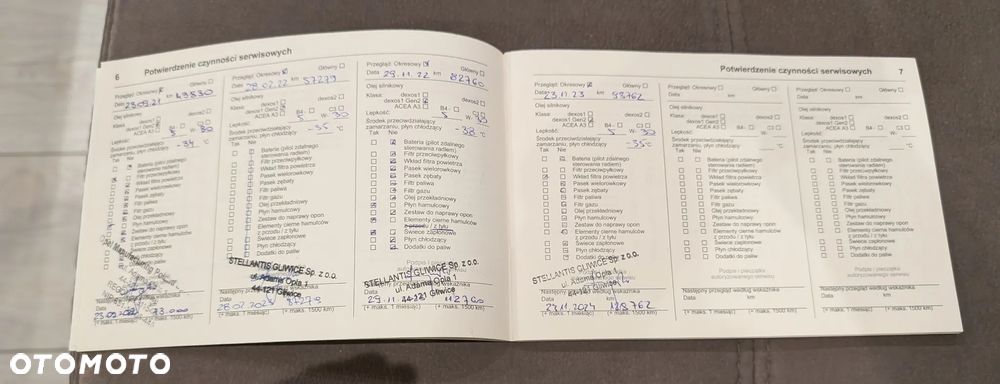 6 Potwierdzenie czynności serwisowych
Przegląd: Okresowy Główny
Data 23.09.21 km 43830
Olej silnikowy
Klasa: dexos1 dexos2
dexos1 Gen2
ACEA A3 B4 C3
Lepkość: 5 W- 30
Środek przeciwdziałający
zamarzaniu, płyn chłodzący -34 °C
Tak Nie
Bateria (pilot zdalnego
sterowania radiem)
Filtr przeciwpyłkowy
Wkład filtra powietrza
Pasek wielorowkowy
Pasek zębaty
Filtr paliwa
Filtr gazu
Olej przekładniowy
Płyn hamulcowy
Zestaw do naprawy opon
Elementy cierne hamulców
z przodu / z tyłu
Świece zapłonowe
Płyn chłodzący
Dodatki do paliw
Następny przegląd według wskaźnika
Data km
(+ maks. 1 miesiąc) (+ maks. 1500 km)
Przegląd: Okresowy Główny
Data 28.02.22 km 57279
Olej silnikowy
Klasa: dexos1 dexos2
dexos1 Gen2
ACEA A3 B4 C3
Lepkość: 5 W- 30
Środek przeciwdziałający
zamarzaniu, płyn chłodzący -35 °C
Tak Nie
Bateria (pilot zdalnego
sterowania radiem)
Filtr przeciwpyłkowy
Wkład filtra powietrza
Pasek wielorowkowy
Pasek zębaty
Filtr paliwa
Filtr gazu
Olej przekładniowy
Płyn hamulcowy
Zestaw do naprawy opon
Elementy cierne hamulców
z przodu / z tyłu
Świece zapłonowe
Płyn chłodzący
Dodatki do paliw
STELLANTIS GLIWICE Sp. z o.o.
ul. Adama Opla 1
44-121 Gliwice
Następny przegląd według wskaźnika
Data km
(+ maks. 1 miesiąc) (+ maks. 1500 km)
Przegląd: Okresowy Główny
Data 29.11.22 km 82760
Olej silnikowy
Klasa: dexos1 dexos2
dexos1 Gen2
ACEA A3 B4 C3
Lepkość: 5 W- 30
Środek przeciwdziałający
zamarzaniu, płyn chłodzący -38 °C
Tak Nie
Bateria (pilot zdalnego
sterowania radiem)
Filtr przeciwpyłkowy
Wkład filtra powietrza
Pasek wielorowkowy
Pasek zębaty
Filtr paliwa
Filtr gazu
Olej przekładniowy
Płyn hamulcowy
Zestaw do naprawy opon
Elementy cierne hamulców
z przodu / z tyłu
Świece zapłonowe
Płyn chłodzący
Dodatki do paliw
STELLANTIS GLIWICE Sp. z o.o.
ul. Adama Opla 1
44-121 Gliwice
Następny przegląd według wskaźnika
Data 29.11 km 112760
(+ maks. 1 miesiąc) (+ maks. 1500 km)
Potwierdzenie czynności serwisowych 7
Przegląd: Okresowy Główny
Data 23.11.23 km 98762
Olej silnikowy
Klasa: dexos1 dexos2
dexos1 Gen2
ACEA A3 B4 C3
Lepkość: 5 W- 30
Środek przeciwdziałający
zamarzaniu, płyn chłodzący -35 °C
Tak Nie
Bateria (pilot zdalnego
sterowania radiem)
Filtr przeciwpyłkowy
Wkład filtra powietrza
Pasek wielorowkowy
Pasek zębaty
Filtr paliwa
Filtr gazu
Olej przekładniowy
Płyn hamulcowy
Zestaw do naprawy opon
Elementy cierne hamulców
z przodu / z tyłu
Świece zapłonowe
Płyn chłodzący
Dodatki do paliw
STELLANTIS GLIWICE Sp. z o.o.
ul. Adama Opla 1
44-121 Gliwice
Następny przegląd według wskaźnika
Data km
(+ maks. 1 miesiąc) (+ maks. 1500 km)
Przegląd: Okresowy Główny
Data km
Olej silnikowy
Klasa: dexos1 dexos2
dexos1 Gen2
ACEA A3 B4 C3
Lepkość: W-
Środek przeciwdziałający
zamarzaniu, płyn chłodzący °C
Tak Nie
Bateria (pilot zdalnego
sterowania radiem)
Filtr przeciwpyłkowy
Wkład filtra powietrza
Pasek wielorowkowy
Pasek zębaty
Filtr paliwa
Filtr gazu
Olej przekładniowy
Płyn hamulcowy
Zestaw do naprawy opon
Elementy cierne hamulców
z przodu / z tyłu
Świece zapłonowe
Płyn chłodzący
Dodatki do paliw
Podpis i pieczątka
autoryzowanego serwisu
Następny przegląd według wskaźnika
Data km
(+ maks. 1 miesiąc) (+ maks. 1500 km)
Przegląd: Okresowy Główny
Data km
Olej silnikowy
Klasa: dexos1 dexos2
dexos1 Gen2
ACEA A3 B4 C3
Lepkość: W-
Środek przeciwdziałający
zamarzaniu, płyn chłodzący °C
Tak Nie
Bateria (pilot zdalnego
sterowania radiem)
Filtr przeciwpyłkowy
Wkład filtra powietrza
Pasek wielorowkowy
Pasek zębaty
Filtr paliwa
Filtr gazu
Olej przekładniowy
Płyn hamulcowy
Zestaw do naprawy opon
Elementy cierne hamulców
z przodu / z tyłu
Świece zapłonowe
Płyn chłodzący
Dodatki do paliw
Podpis i pieczątka
autoryzowanego serwisu
Następny przegląd według wskaźnika
Data km
(+ maks. 1 miesiąc) (+ maks. 1500 km)
OTOMOTO